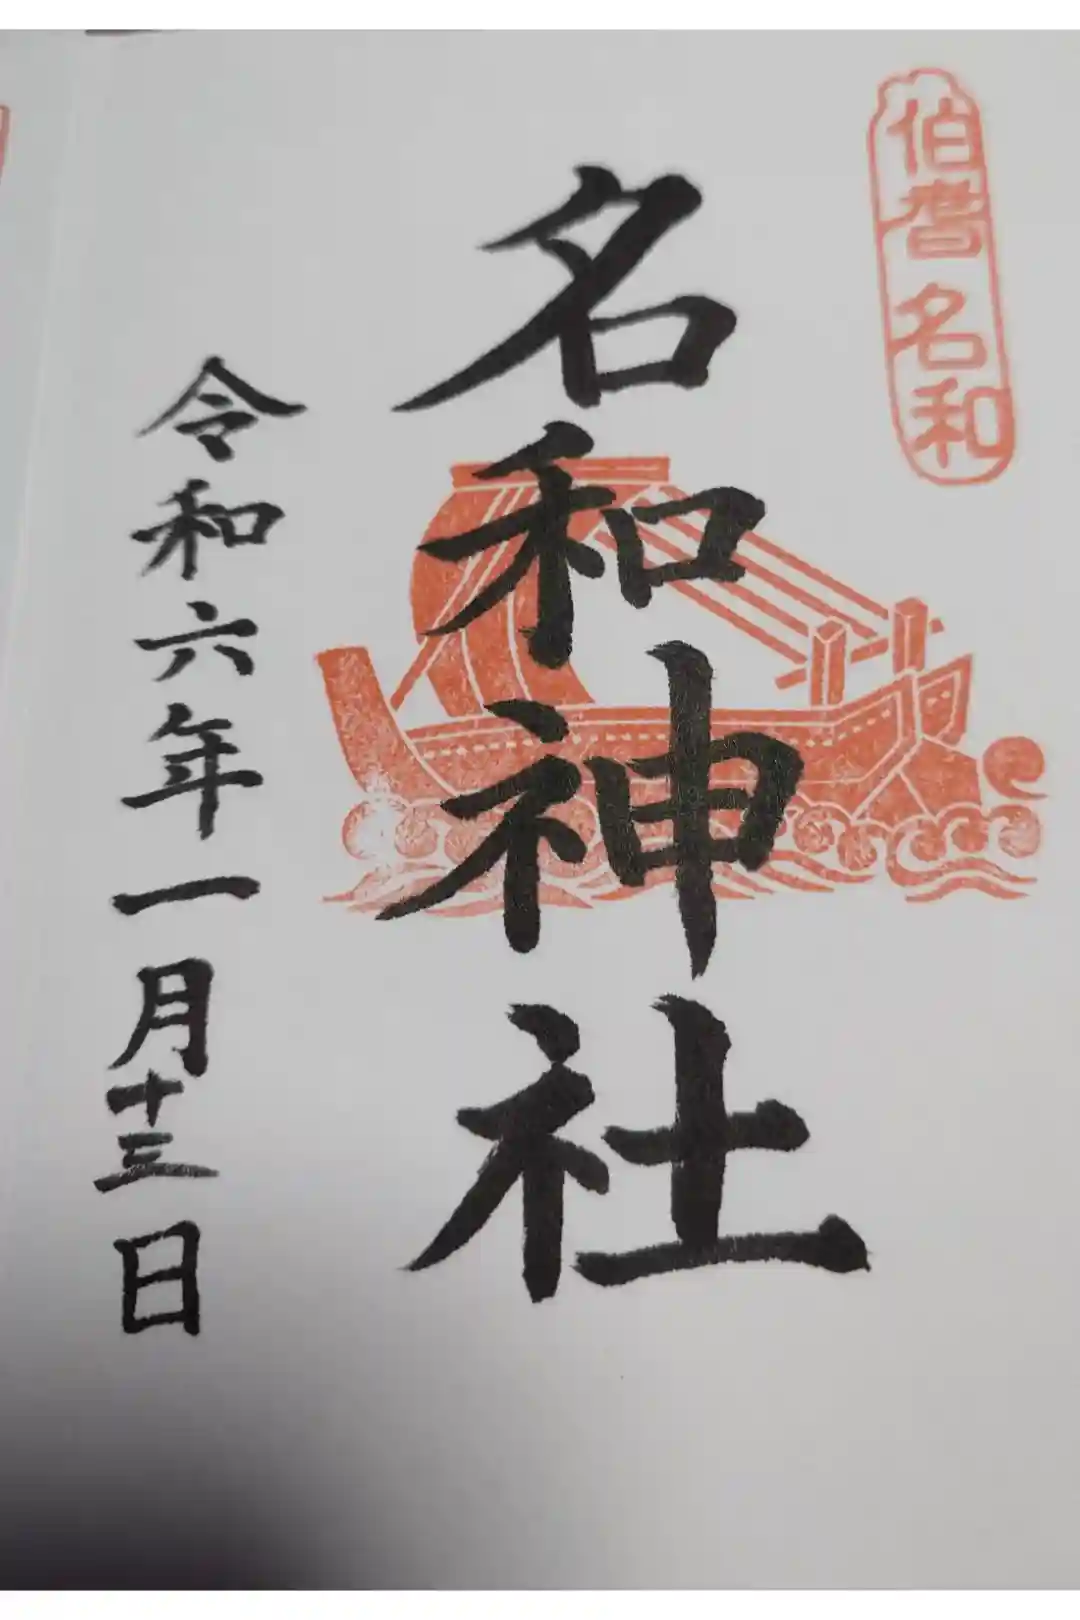 伯耆名和
名和神社
令和六年一月十三日